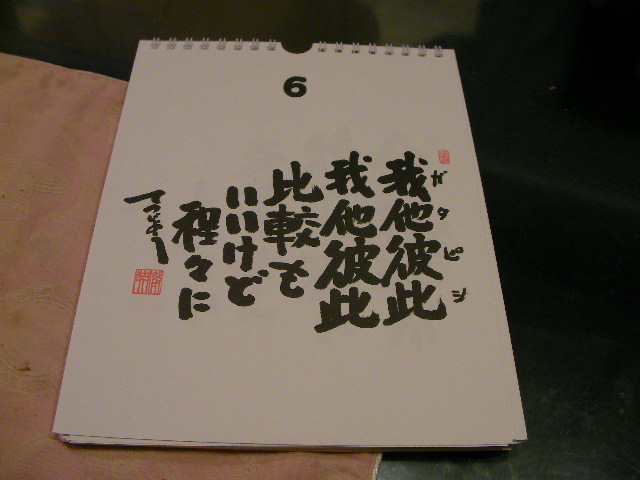 6
我他彼此
ガタピシ
我他彼此
比較も
いいけど
程々に